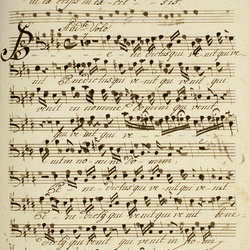 in ex cel sis
And.te Solo
qui ve nit qui ve
nit Benedictus qui ve nit qui venit qui
venit in nomine Domini qui venit
qui ve nit qui ve
nit in no mi ne Do mi ni,
Be ne dictus qui ve nit qui ve nit
Be ne dictg qui venit qui ve nit bene
dictg qui venit qui venit in no mi